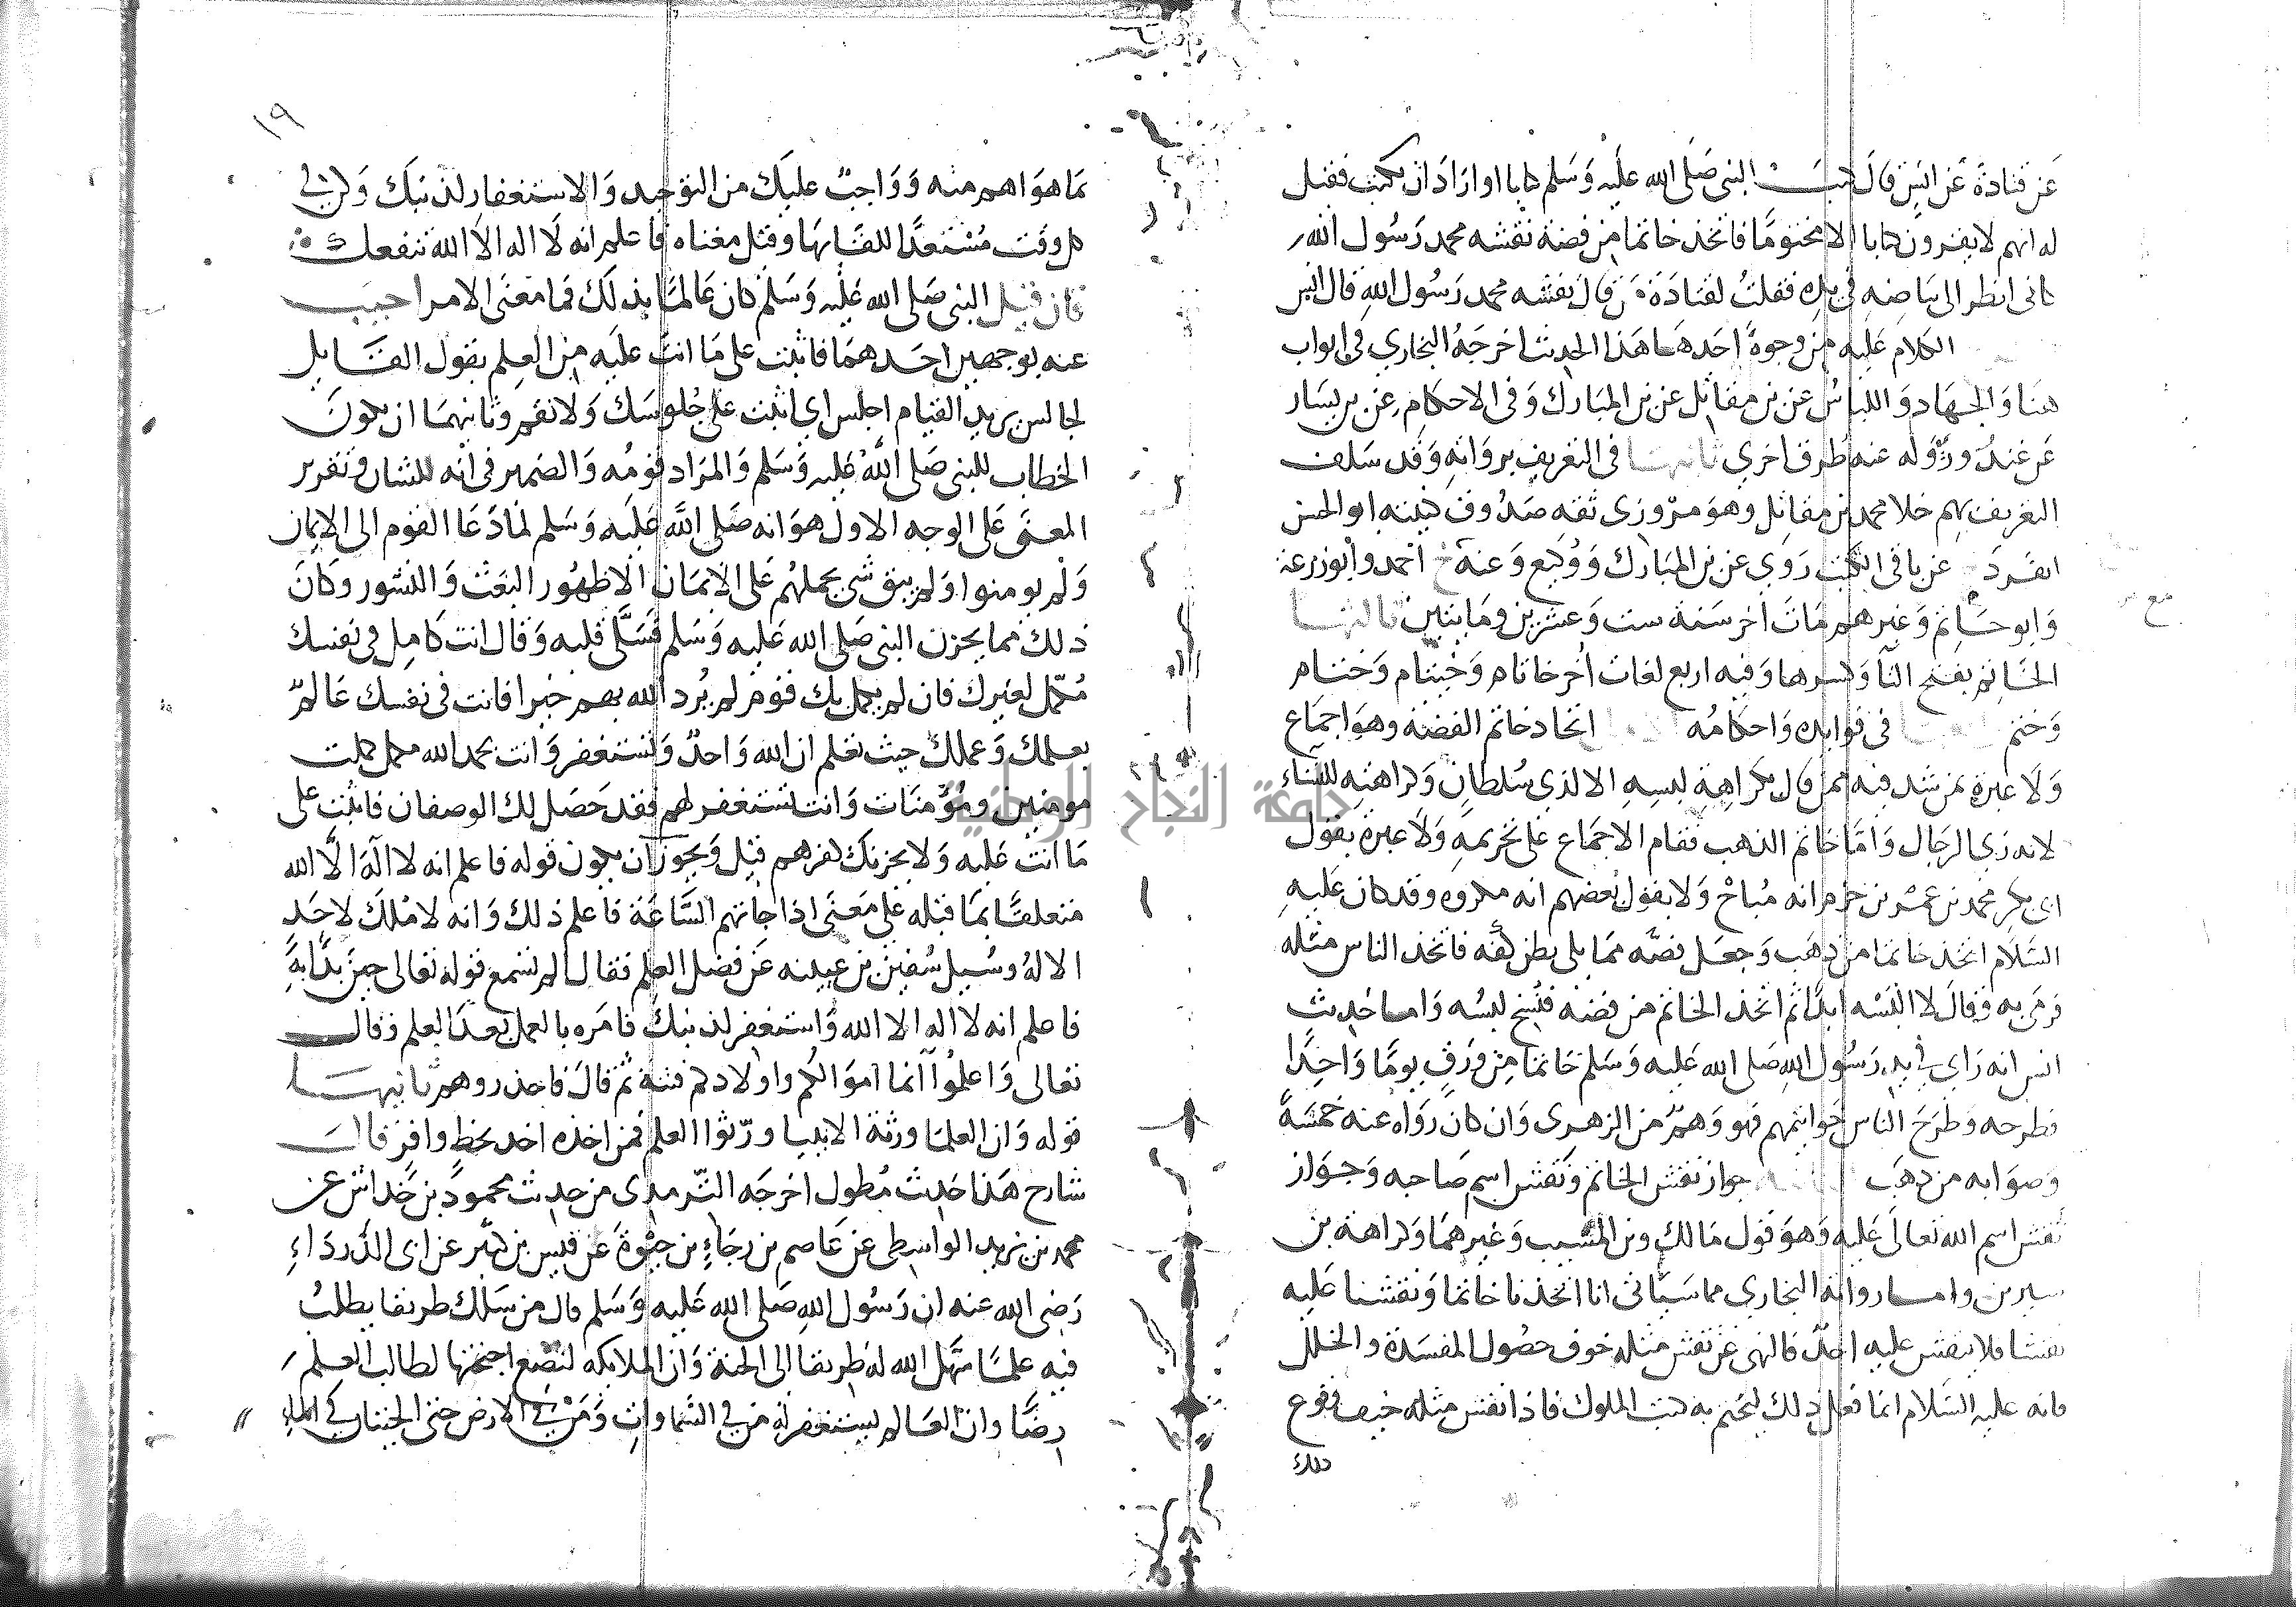 عن قتادة عن انس قال كتب النبي صلى الله عليه وسلم كتابا او اراد ان يكتب فقيل
له انهم لا يقرون كتابا الا مختوما فاتخذ خاتما من فضة نقشه محمد رسول الله
كاني انظر الى بياضه في يده فقلت لقتادة من قال نقشه محمد رسول الله قال انس
الكلام عليه من وجوه احدها هذا الحديث اخرجه البخاري في ابواب
هنا والجهاد واللباس عن بن مقاتل عن بن المبارك وفي الاحكام عن بن بسار
عن غندر وله عنه طرق اخري ثانيها في التعريف برواته وقد سلف
التعريف بهم خلا محمد بن مقاتل وهو مروزي ثقه صدوق كنيته ابو الحسن
انفرد عن باقي الكتب روي عن بن المبارك ووكيع وعنه خ احمد وابو زرعة
وابو حاتم وغيرهم مات اخر سنة ست وعشرين ومايتين ثالثها
الخاتم بفتح التا وكسرها وفيه اربع لغات اخر خاتام وخيتام وختام
وختم في فوايده واحكامه اتخاذ خاتم الفضة وهو اجماع
ولا عبرة بمن شذ فيه ممن قال بكراهة لبسه الا لذي سلطان وكراهته للنساء
لانه زي الرجال واما خاتم الذهب فقام الاجماع على تحريمه ولا عبرة بقول
ابي بكر محمد بن عمر بن حزم انه مباح ولا بقول بعضهم انه مكروه وقد كان عليه
السلام اتخذ خاتما من ذهب وجعل فصه مما يلي بطن كفه فاتخذ الناس مثله
فرمى به وقال لا البسه ابدا ثم اتخذ الخاتم من فضة فنسخ لبسه واما حديث
انس انه راي في يد رسول الله صلى الله عليه وسلم خاتما من ورق يوما واحدا
فطرحه وطرح الناس خواتيمهم فهو وهم من الزهري وان كان رواه عنه خمسة
وصوابه من ذهب جواز نقش الخاتم ونقش اسم صاحبه وجواز
نقش اسم الله تعالى عليه وهو قول مالك وبن المسيب وغيرهما وكراهة بن
سيرين واما رواية البخاري مما سياتي انا اتخذنا خاتما ونقشنا عليه
نقشا فلا ينقش عليه احد فالنهي عن نقش مثله خوف حصول المفسدة والخلل
فانه عليه السلام انما فعل ذلك ليختم به كتب الملوك فاذا نقش مثله خيف وقوع
ذلك
١٩
بما هو اهم منه وواجب عليك من التوحيد والاستغفار لذنبك وكن في
كل وقت مستعدا للقايها وقيل معناه فاعلم انه لا اله الا الله تنفعك
فان قيل النبي صلى الله عليه وسلم كان عالما بذلك فما معنى الامر اجيب
عنه بوجهين احدهما فاثبت على ما انت عليه من العلم بقول القايل
لجالس يريد القيام اجلس اي اثبت على جلوسك ولا تقم وثانيهما ان يكون
الخطاب للنبي صلى الله عليه وسلم والمراد قومه والضمير في انه للشان وتقرير
المعنى على الوجه الاول هو انه صلى الله عليه وسلم لما دعا القوم الى الايمان
ولم يومنوا ولم يبق شي يحملهم على الايمان الا ظهور البعث والنشور وكان
ذلك مما يحزن النبي صلى الله عليه وسلم فسلى قلبه وقال انت كامل في نفسك
مكمل لغيرك فان لم يكمل بك قوم لم يرد الله بهم خيرا فانت في نفسك عالم
بعلمك وعملك حيث تعلم ان الله واحد وتستغفر وانت بحمد الله مكمل كملت
مومنين ومؤمنات وانت تستغفر لهم فقد حصل لك الوصفان فاثبت على
ما انت عليه ولا يحزنك كفرهم قيل ويجوز ان يكون قوله فاعلم انه لا اله الا الله
متعلقا بما قبله على معنى اذا جاتهم الساعة فاعلم ذلك وانه لا ملك لاحد
الا له وسيل سفين بن عيينه عن فضل العلم فقال الم تسمع قوله تعالى حين بدا به
فاعلم انه لا اله الا الله واستغفر لذنبك فامره بالعمل بعد العلم وقال
تعالى واعلموا انما اموالكم واولادكم فتنة ثم قال فاحذروهم ثانيها
قوله وان العلما ورثة الانبيا ورثوا العلم فمن اخذه اخذ بحظ وافر قال
شارح هذا حديث مطول اخرجه الترمذي من حديث محمود بن خداش عن
محمد بن يزيد الواسطي عن عاصم بن رجاء بن حيوة عن قيس بن كثير عن ابي الدرداء
رضي الله عنه ان رسول الله صلى الله عليه وسلم قال من سلك طريقا يطلب
فيه علما سهل الله له طريقا الى الجنة وان الملايكه لتضع اجنحتها لطالب العلم
رضا وان العالم ليستغفر له من في السماوات ومن في الارض حتى الحيتان في الماء